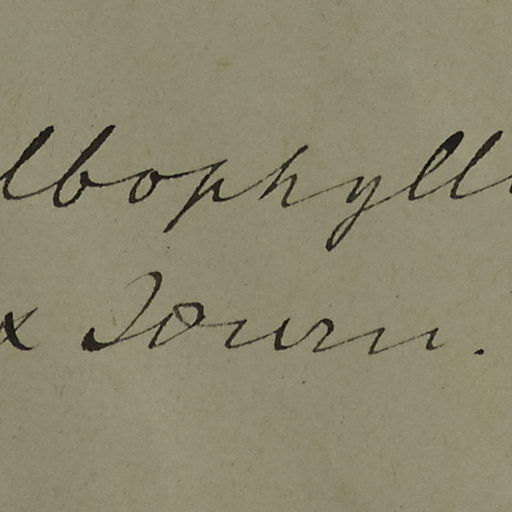 lbophyll
x Journ.